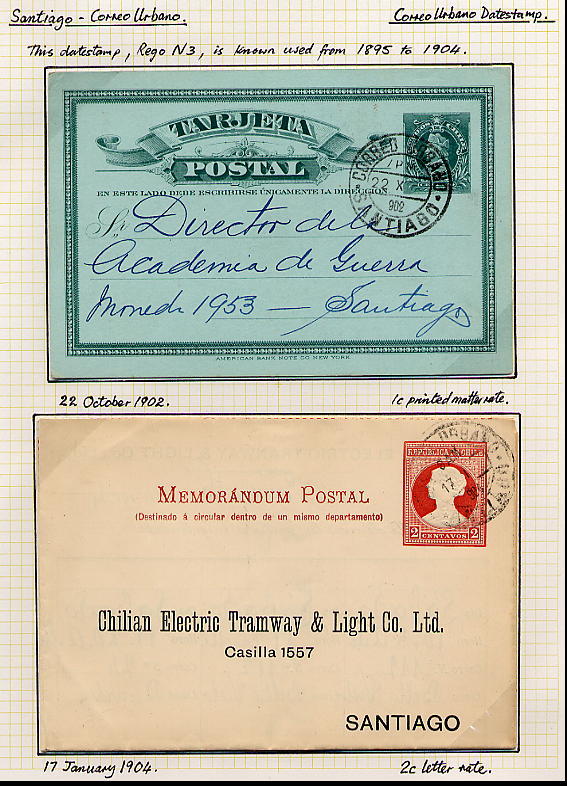 Santiago - Correo Urbano.
Correo Urbano Datestamp.
This datestamp, Rego N3, is known used from 1895 to 1904.
TARJETA
POSTAL
EN ESTE LADO DEBE ESCRIBIRSE ÚNICAMENTE LA DIRECCION
CORREO URBANO
22 X
902
SANTIAGO
Sr Director de la
Academia de Guerra
Moneda 1953 — Santiago
AMERICAN BANK NOTE CO. NEW YORK.
22 October 1902.
1c printed matter rate.
REPUBLICA DE CHILE
MEMORÁNDUM POSTAL
(Destinado á circular dentro de un mismo departamento)
2 CENTAVOS 2
URBANO
17
Chilian Electric Tramway & Light Co. Ltd.
Casilla 1557
SANTIAGO
17 January 1904.
2c letter rate.